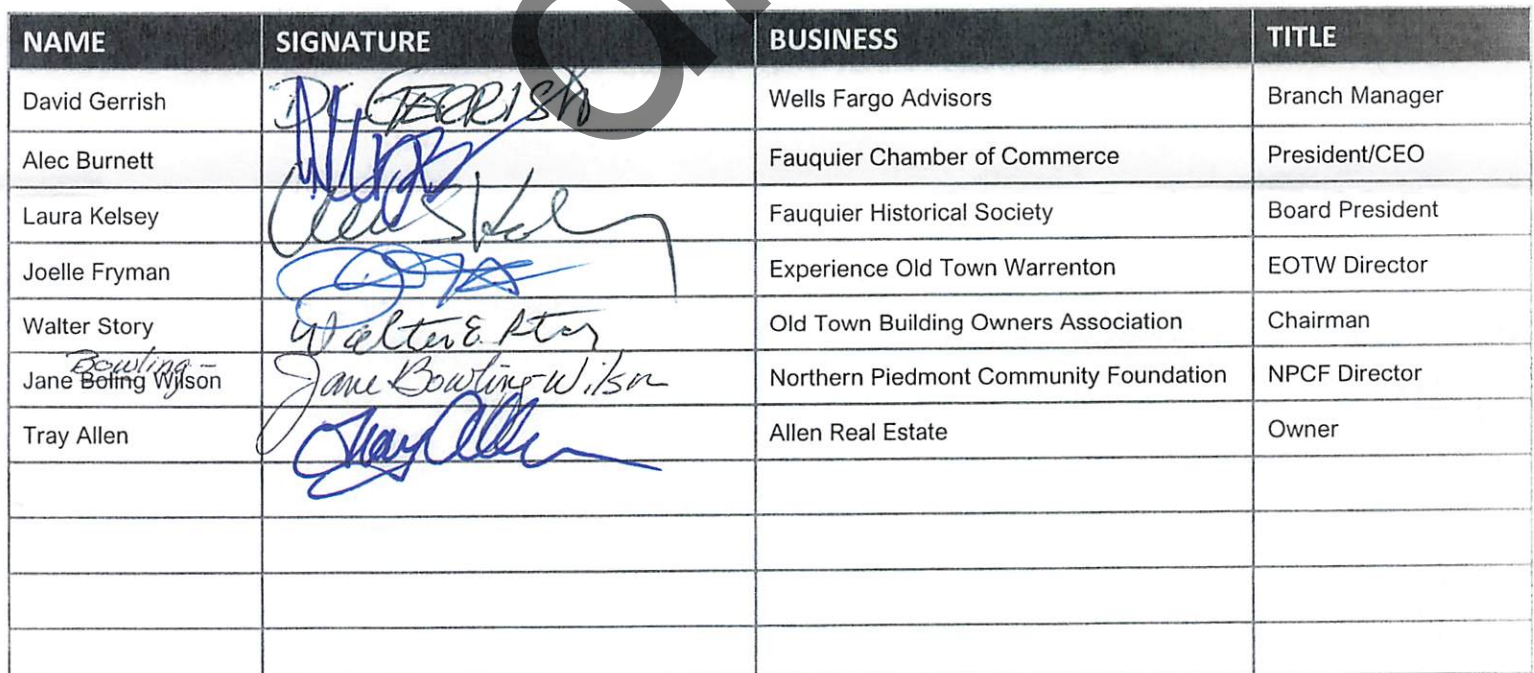 NAME SIGNATURE BUSINESS TITLE
David Gerrish DC GERRISH Wells Fargo Advisors Branch Manager
Alec Burnett Fauquier Chamber of Commerce President/CEO
Laura Kelsey Fauquier Historical Society Board President
Joelle Fryman Experience Old Town Warrenton EOTW Director
Walter Story Walter E. Story Old Town Building Owners Association Chairman
Bowling-
Jane Boling Wilson Jane Bowling-Wilson Northern Piedmont Community Foundation NPCF Director
Tray Allen Tray Allen Allen Real Estate Owner